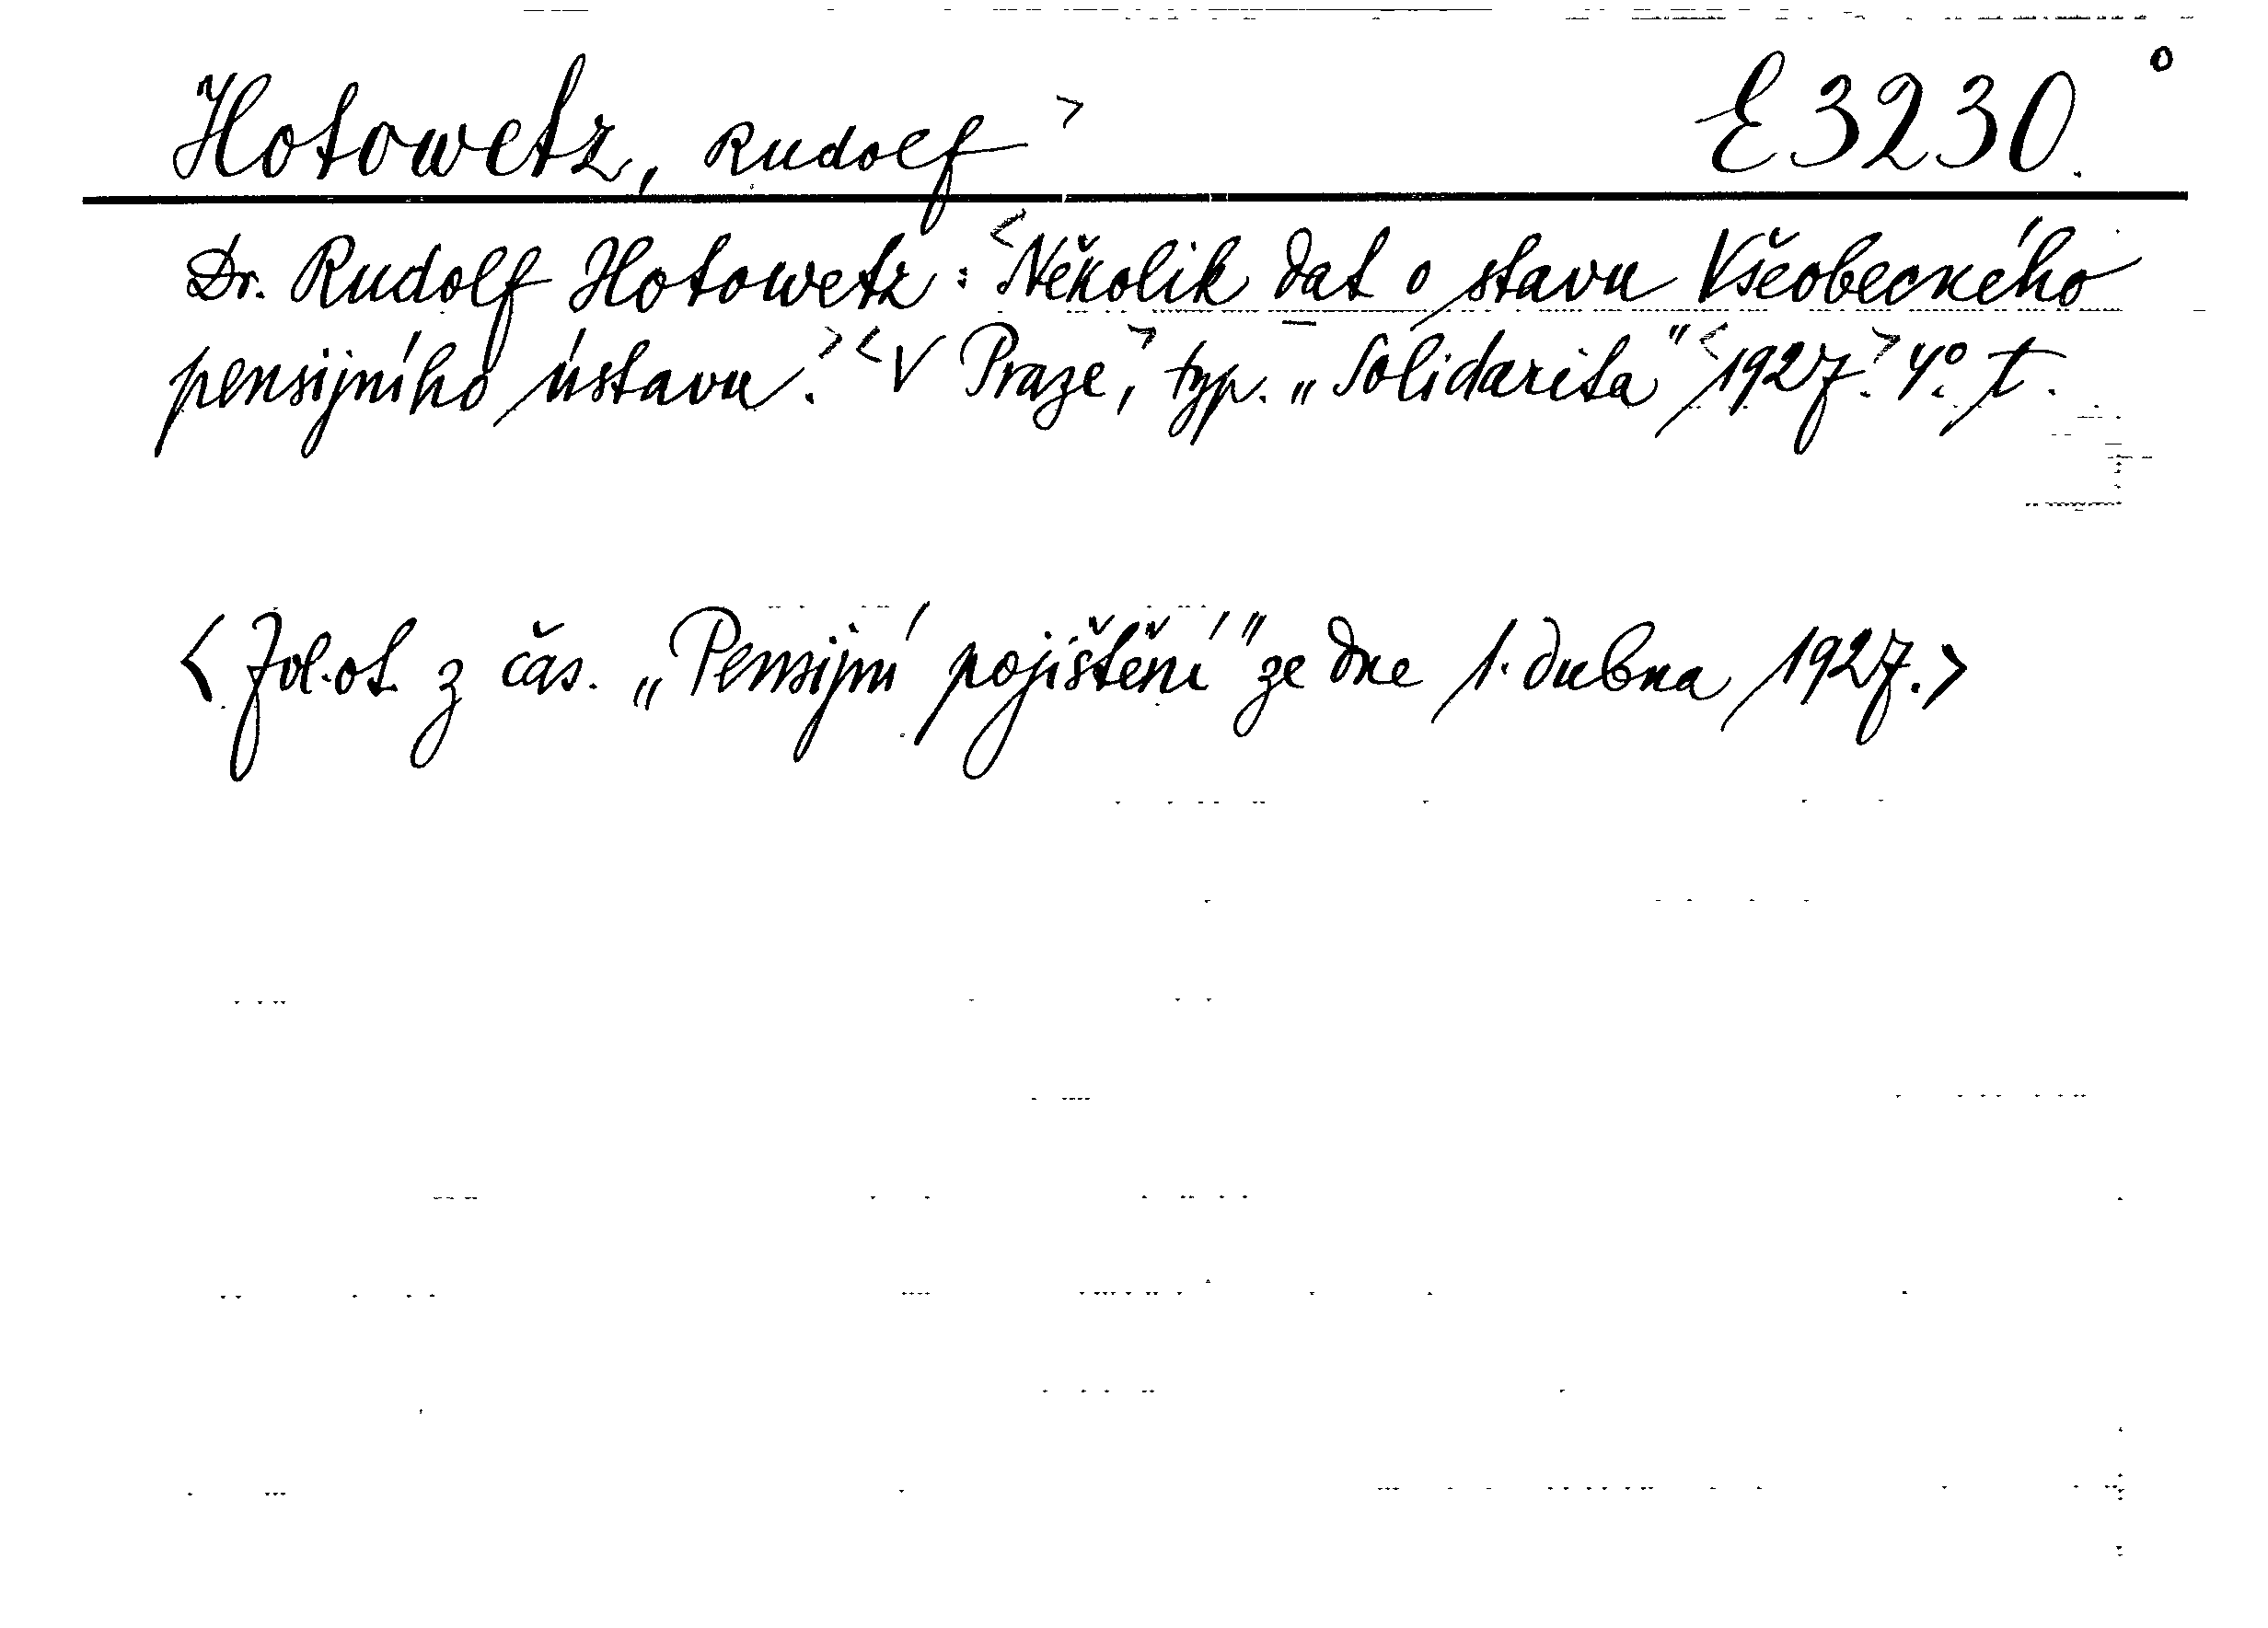 Hotowetz, Rudolf > E 3230. °
Dr. Rudolf Hotowetz: <Několik dat o stavu Všeobecného
pensijního ústavu.> <V Praze,> typ. „Solidarita" <1927.> 4°. t.
<Zvl. ot. z čas. „Pensijní pojištění" ze dne 1. dubna 1927.>